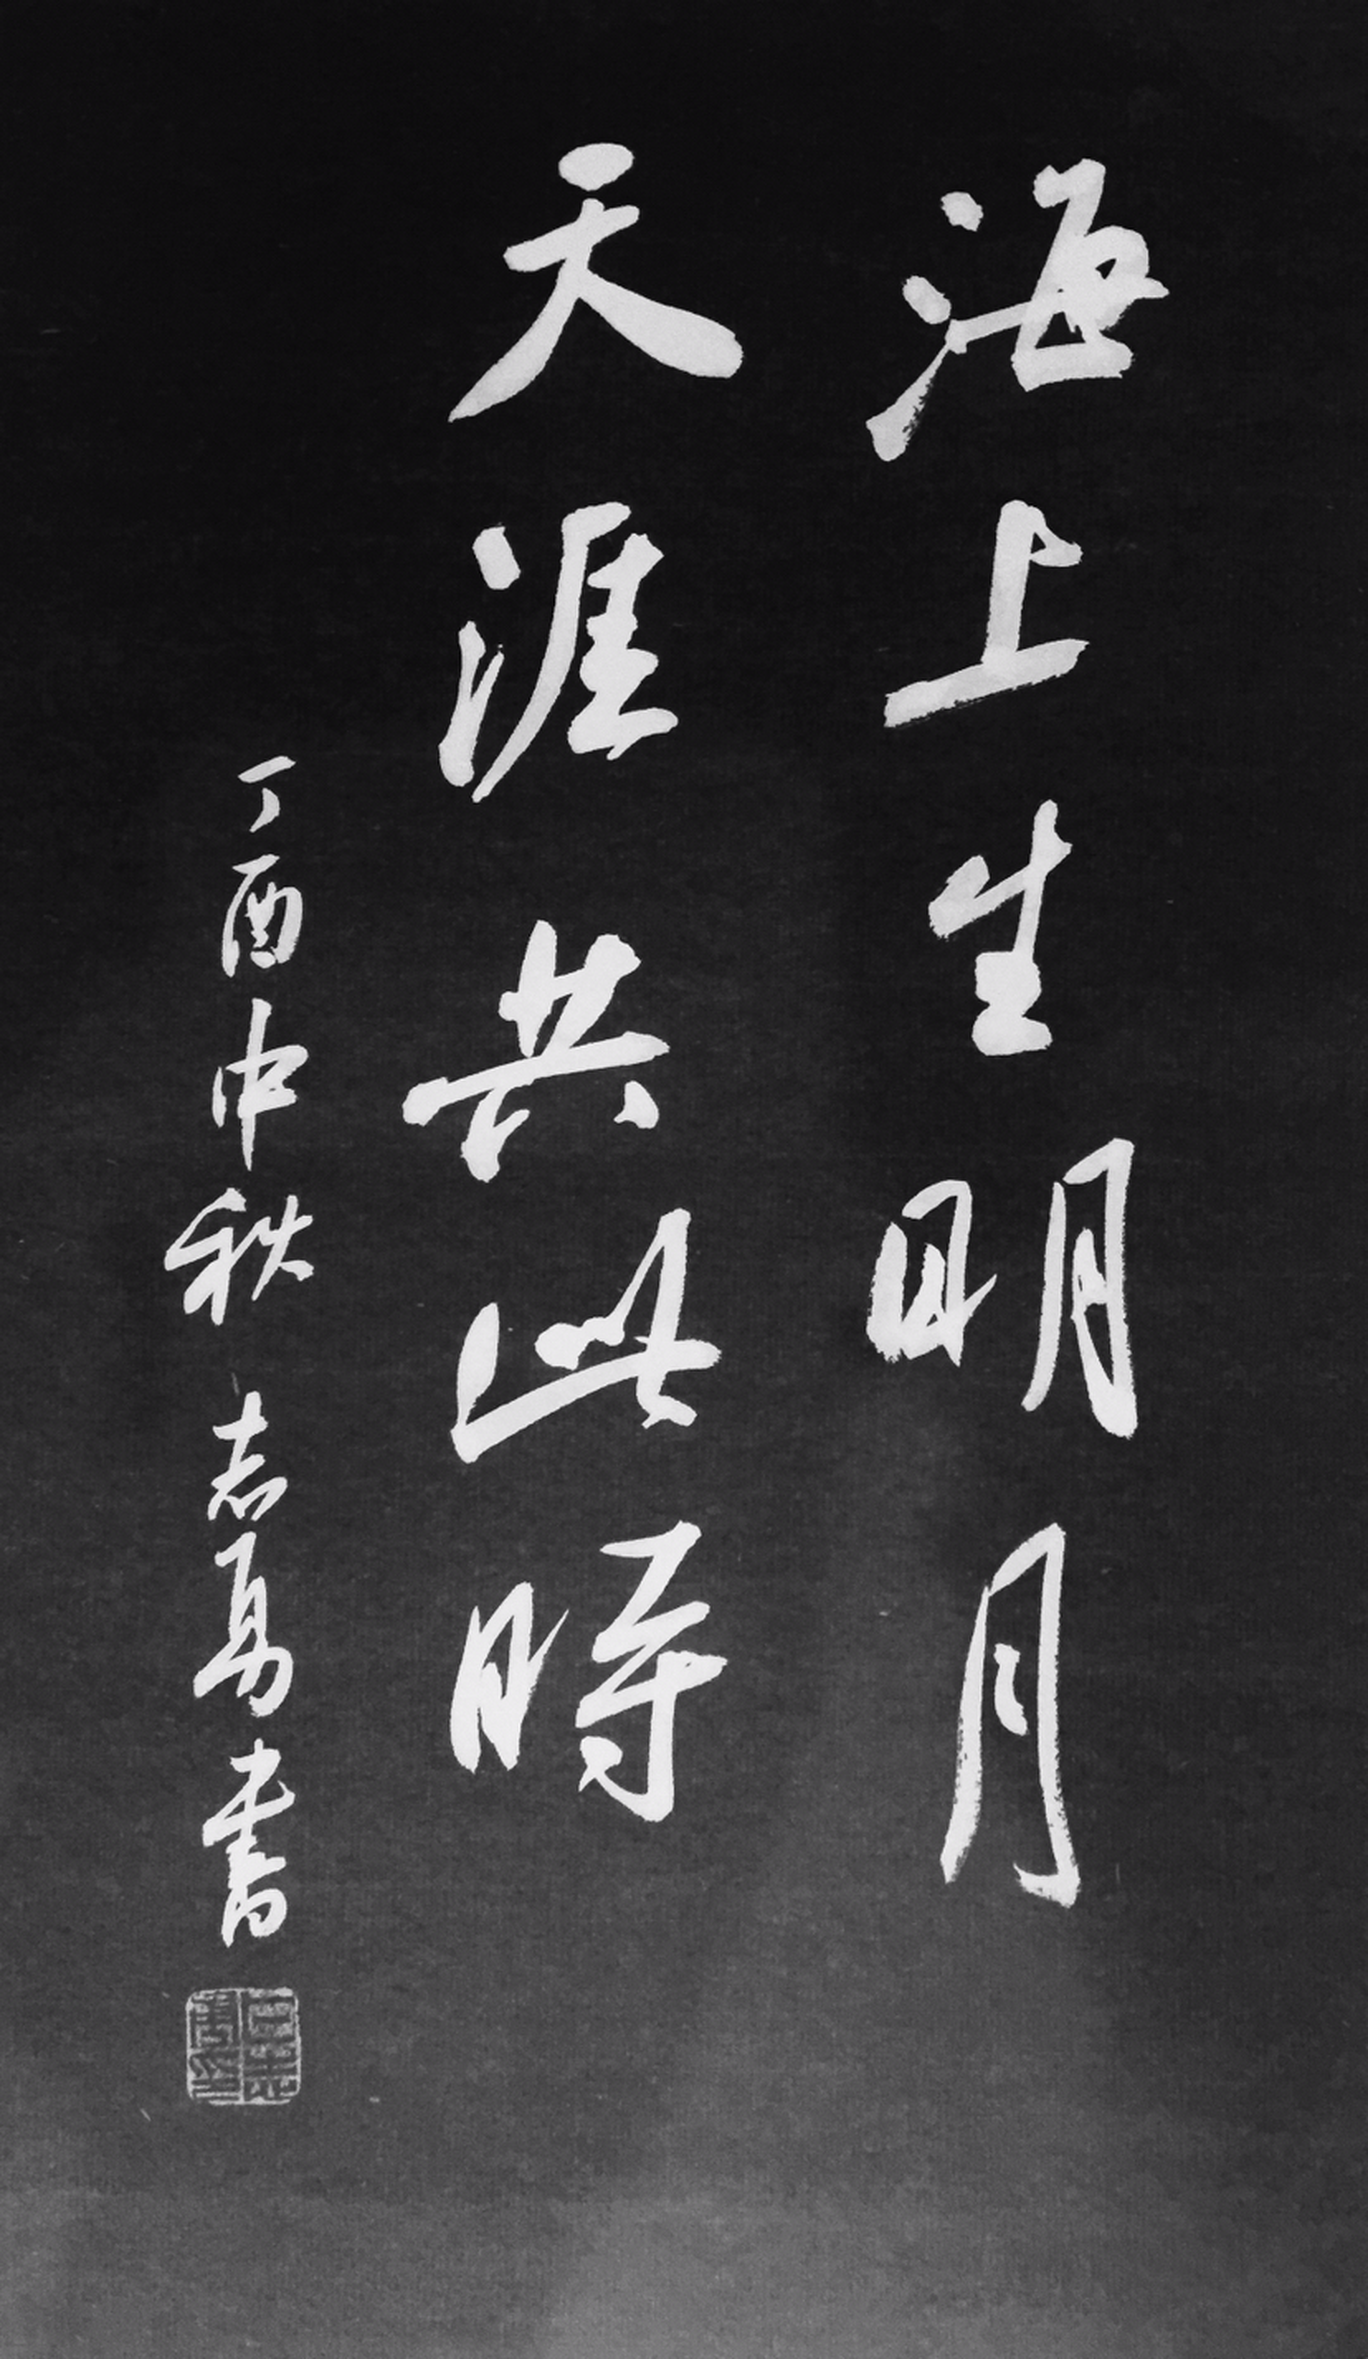 海上生明月
天涯共此時
丁酉中秋 志勇書